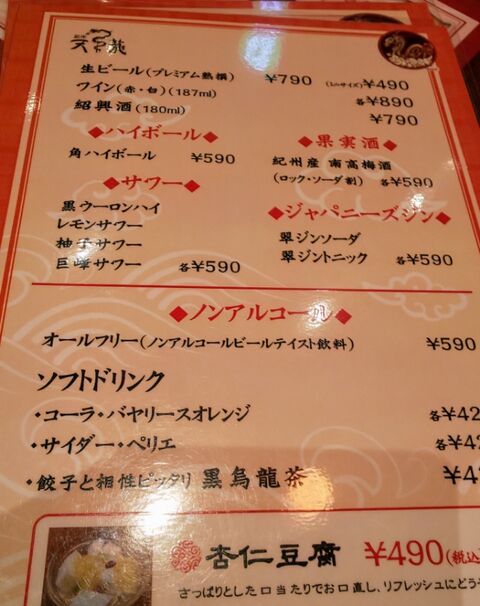 天 龍
生ビール(プレミアム熟撰) ¥790 ¥490
ワイン(赤・白)(187ml) 各¥890
紹興酒(180ml) ¥790
◆ハイボール◆
角ハイボール ¥590
◆果実酒◆
紀州産 南高梅酒
(ロック・ソーダ割) 各¥590
◆サワー◆
黒ウーロンハイ
レモンサワー
柚子サワー
巨峰サワー 各¥590
◆ジャパニーズジン◆
翠ジンソーダ
翠ジントニック 各¥590
◆ノンアルコール◆
オールフリー(ノンアルコールビールテイスト飲料) ¥590
ソフトドリンク
・コーラ・バヤリースオレンジ 各¥42
・サイダー・ペリエ 各¥42
・餃子と相性ピッタリ 黒烏龍茶 ¥4
杏仁豆腐 ¥490(税込)
さっぱりとした口当たりでお口直し、リフレッシュにどう